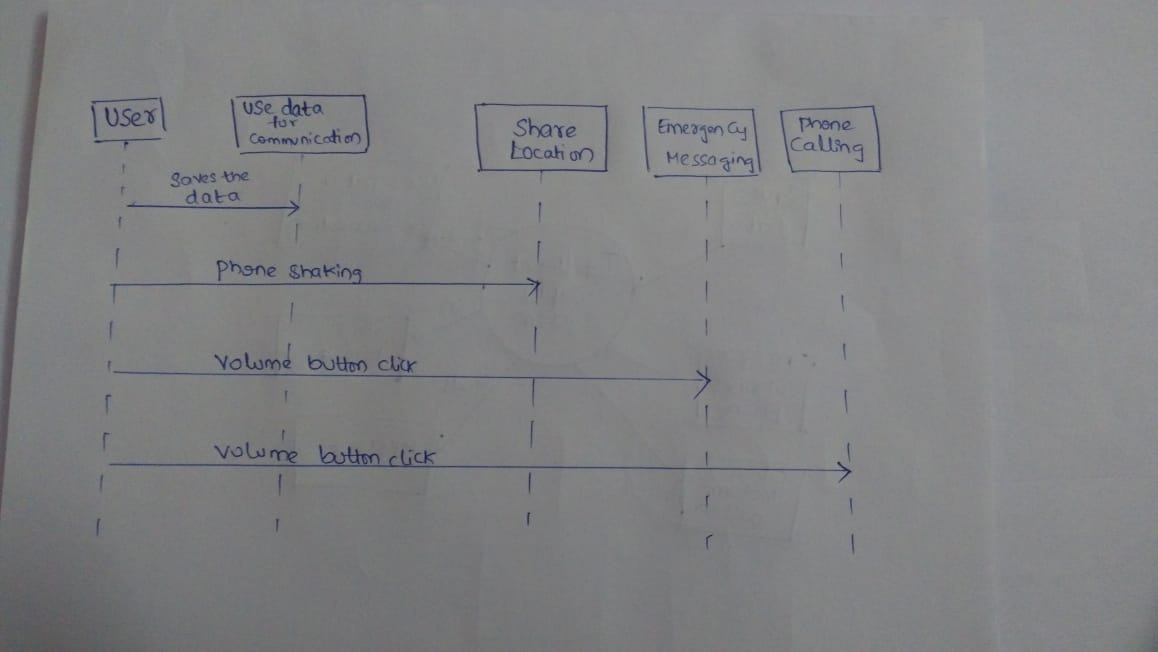 User
Use data
for
communication
Share
Location
Emergency
Messaging
Phone
Calling
Saves the
data
Phone Shaking
Volume button click
Volume button click